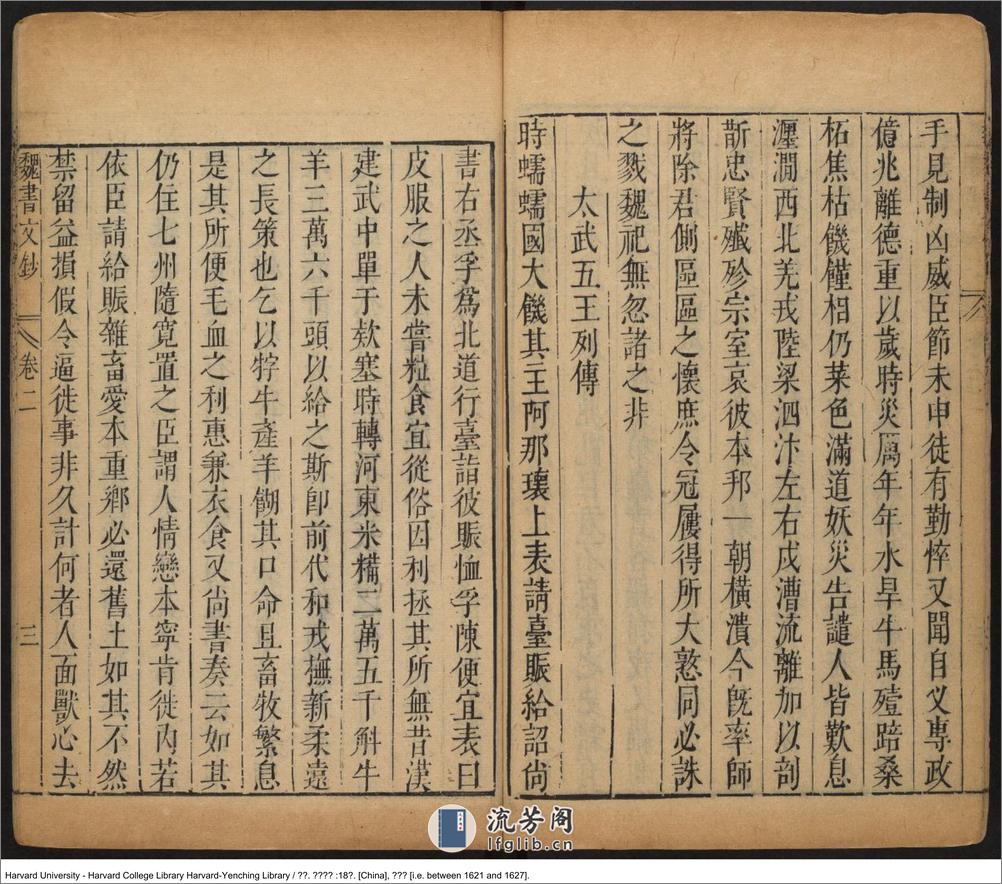 手見制凶威臣節未申徒有勤悴又聞自乂專政
億兆離德重以歲時災厲年年水旱牛馬殪踣桑
柘焦枯饑饉相仍菜色滿道妖災告譴人皆歎息
瀍澗西北羌戎陸梁泗汴左右戍漕流離加以剖
斮忠賢殲殄宗室哀彼本邦一朝橫潰今旣率師
將除君側區區之懷庶令冠屨得所大憝同必誅
之戮魏祀無忽諸之非
太武五王列傳
時蠕蠕國大饑其王阿那瓌上表請臺賑給詔尙
書右丞孚爲北道行臺詣彼賑恤孚陳便宜表曰
皮服之人未嘗粒食宜從俗因利拯其所無昔漢
建武中單于欵塞時轉河東米糒二萬五千斛牛
羊三萬六千頭以給之斯卽前代和戎撫新柔遠
之長策也乞以牸牛產羊餬其口命且畜牧繁息
是其所便毛血之利惠兼衣食又尙書奏云如其
仍住七州隨寬置之臣謂人情戀本寧肯徙內若
依臣請給賑雜畜愛本重鄕必還舊土如其不然
禁留益損假令逼徙事非久計何者人面獸心去
魏書文鈔 卷二 三
流芳阁
lfglib.cn
Harvard University - Harvard College Library Harvard-Yenching Library / ??. ???? :18?. [China], ??? [i.e. between 1621 and 1627].